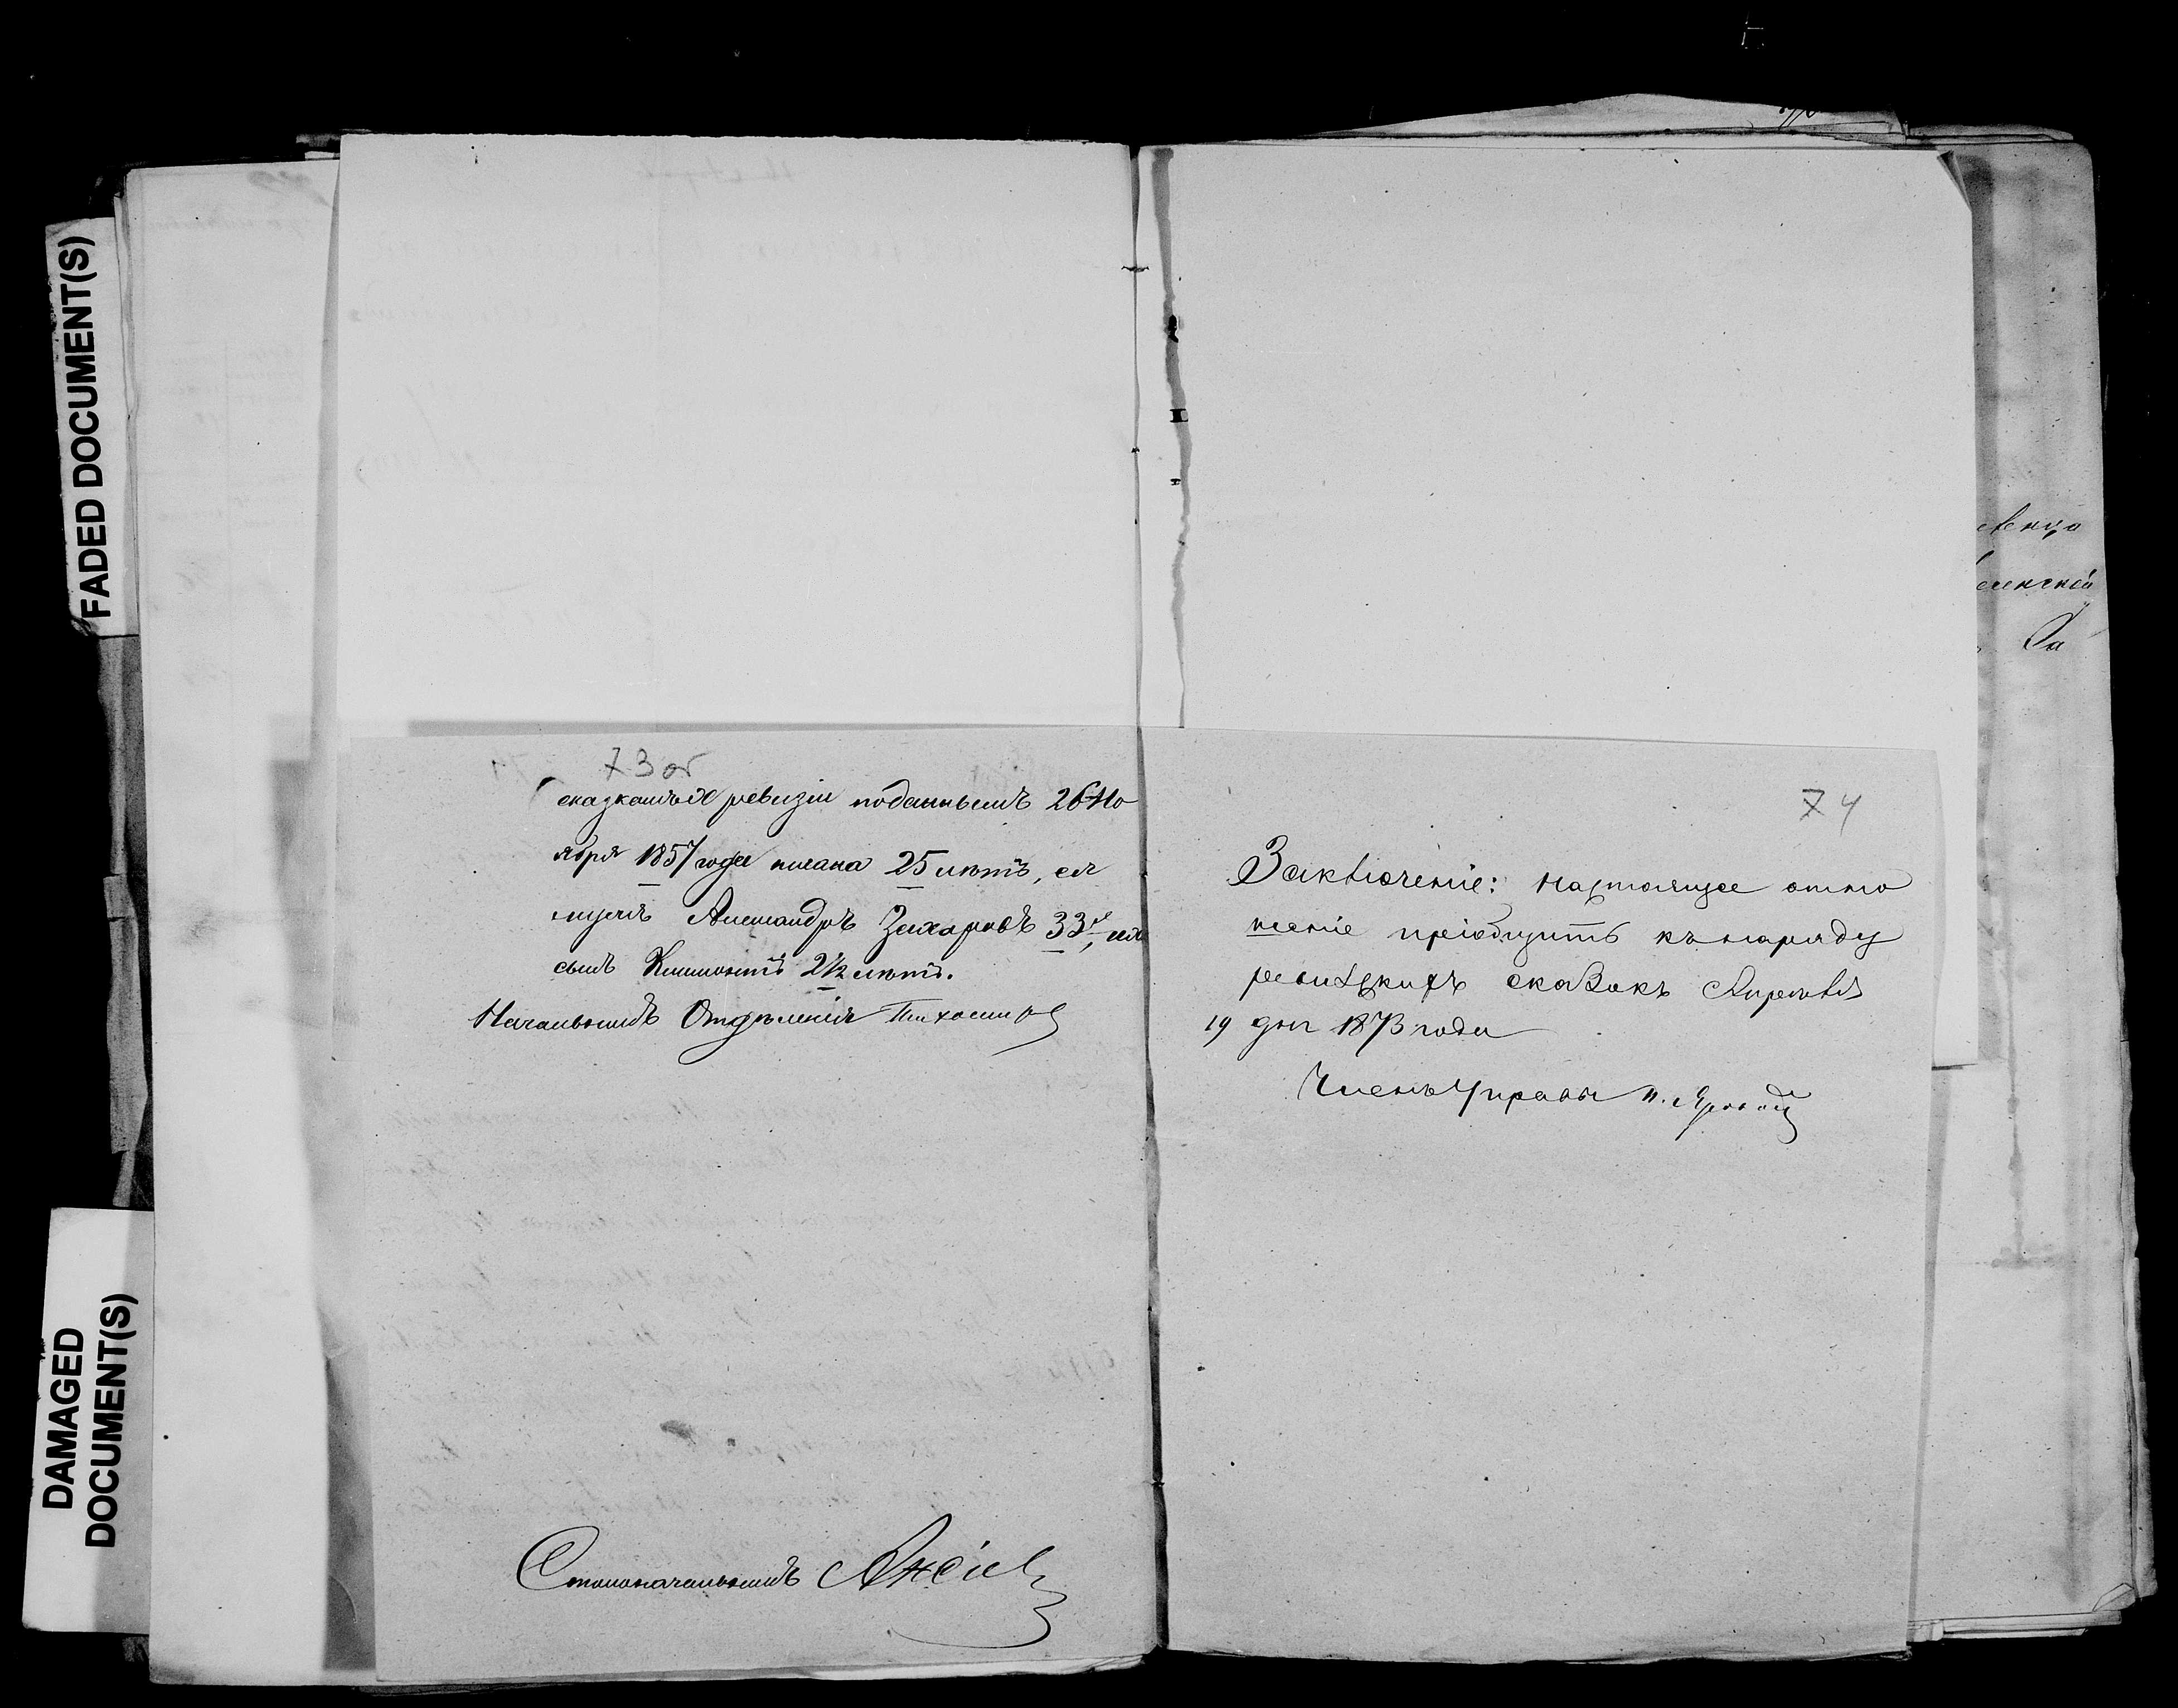 FADED DOCUMENT(S)
DAMAGED
DOCUMENT(S)
73 об
сказкамъ X ревизіи поданнымъ 26 Но
ября 1857 года писана 25 лѣтъ, ея
мужъ Александръ Захаровъ 33х,
сынъ 2½ лѣтъ.
Начальникъ Отдѣленія Тихомиров
Столоначальникъ
74
Заключеніе: настоящее отно
шеніе пріобщить къ наряду
ревизскихъ сказокъ Апрѣля
19 дня 1873 года
Членъ Управы